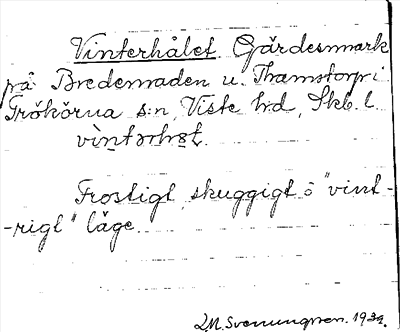 Vinterhålet. Gärdesmark
på Bredemaden u. Thamstorp i
Frökörna s:n, Viste hd, Skb. l.
Frostigt, skuggigt o "vint-
-rigt" läge.
Svenungsson. 1932.